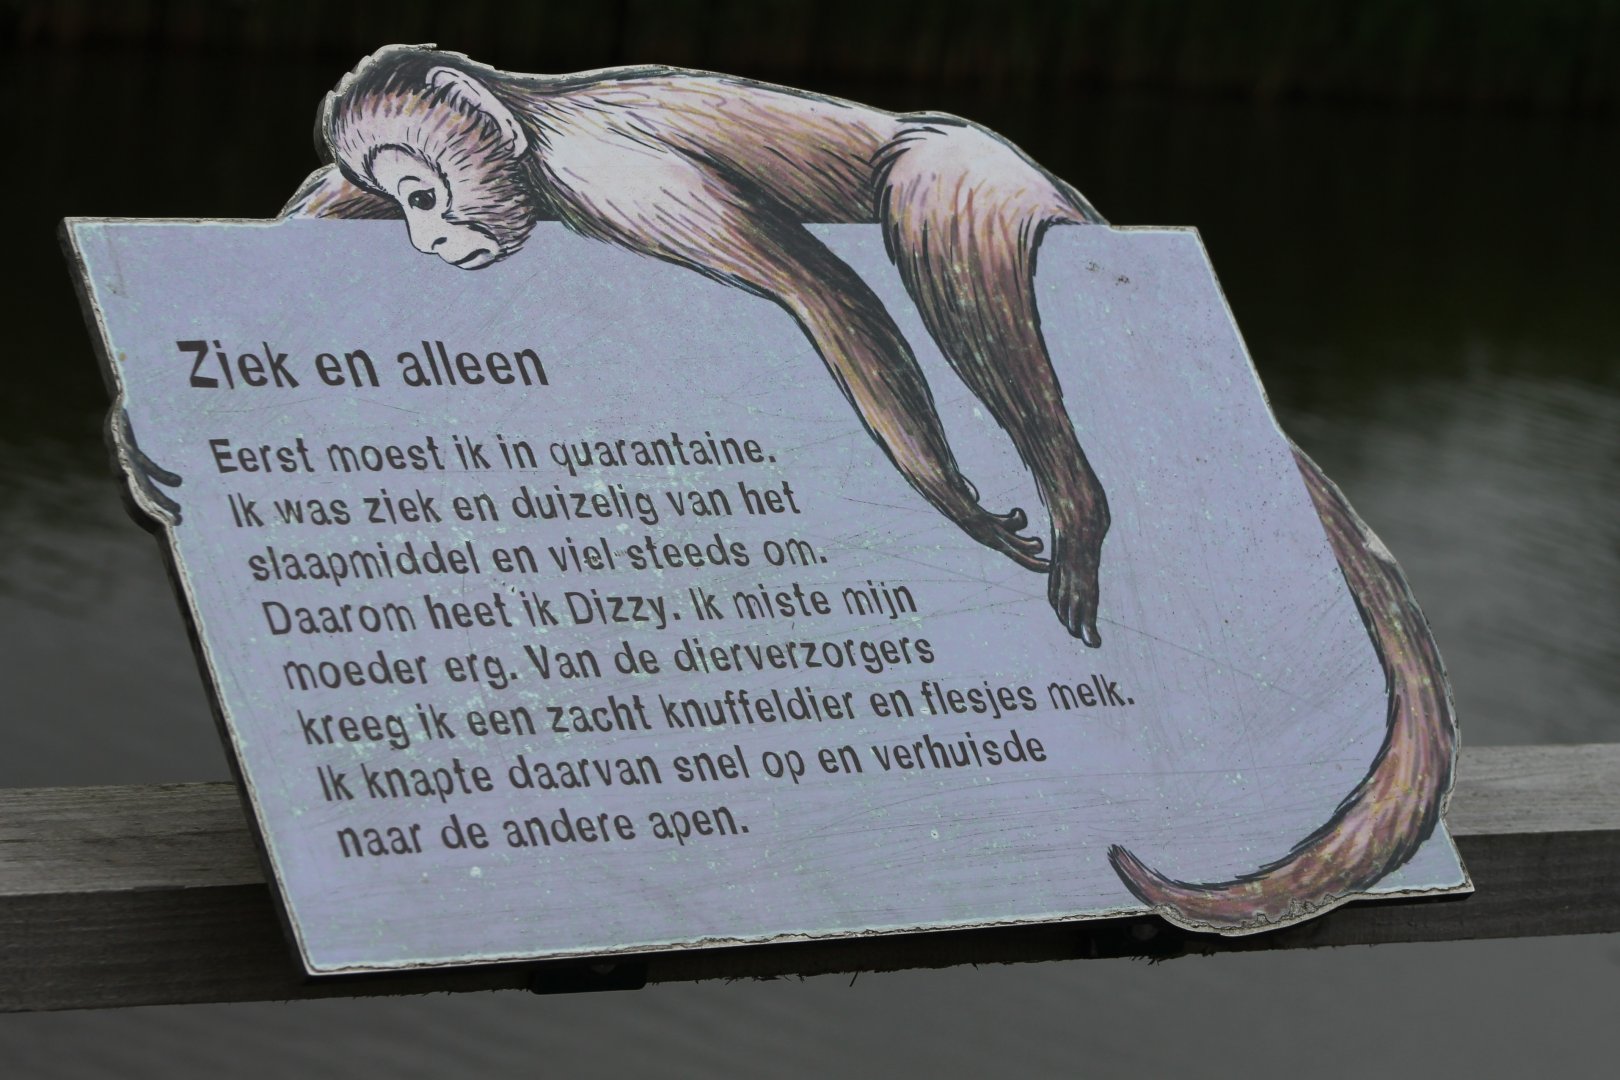 Ziek en alleen
Eerst moest ik in quarantaine.
Ik was ziek en duizelig van het
slaapmiddel en viel steeds om.
Daarom heet ik Dizzy. Ik miste mijn
moeder erg. Van de dierverzorgers
kreeg ik een zacht knuffeldier en flesjes melk.
Ik knapte daarvan snel op en verhuisde
naar de andere apen.